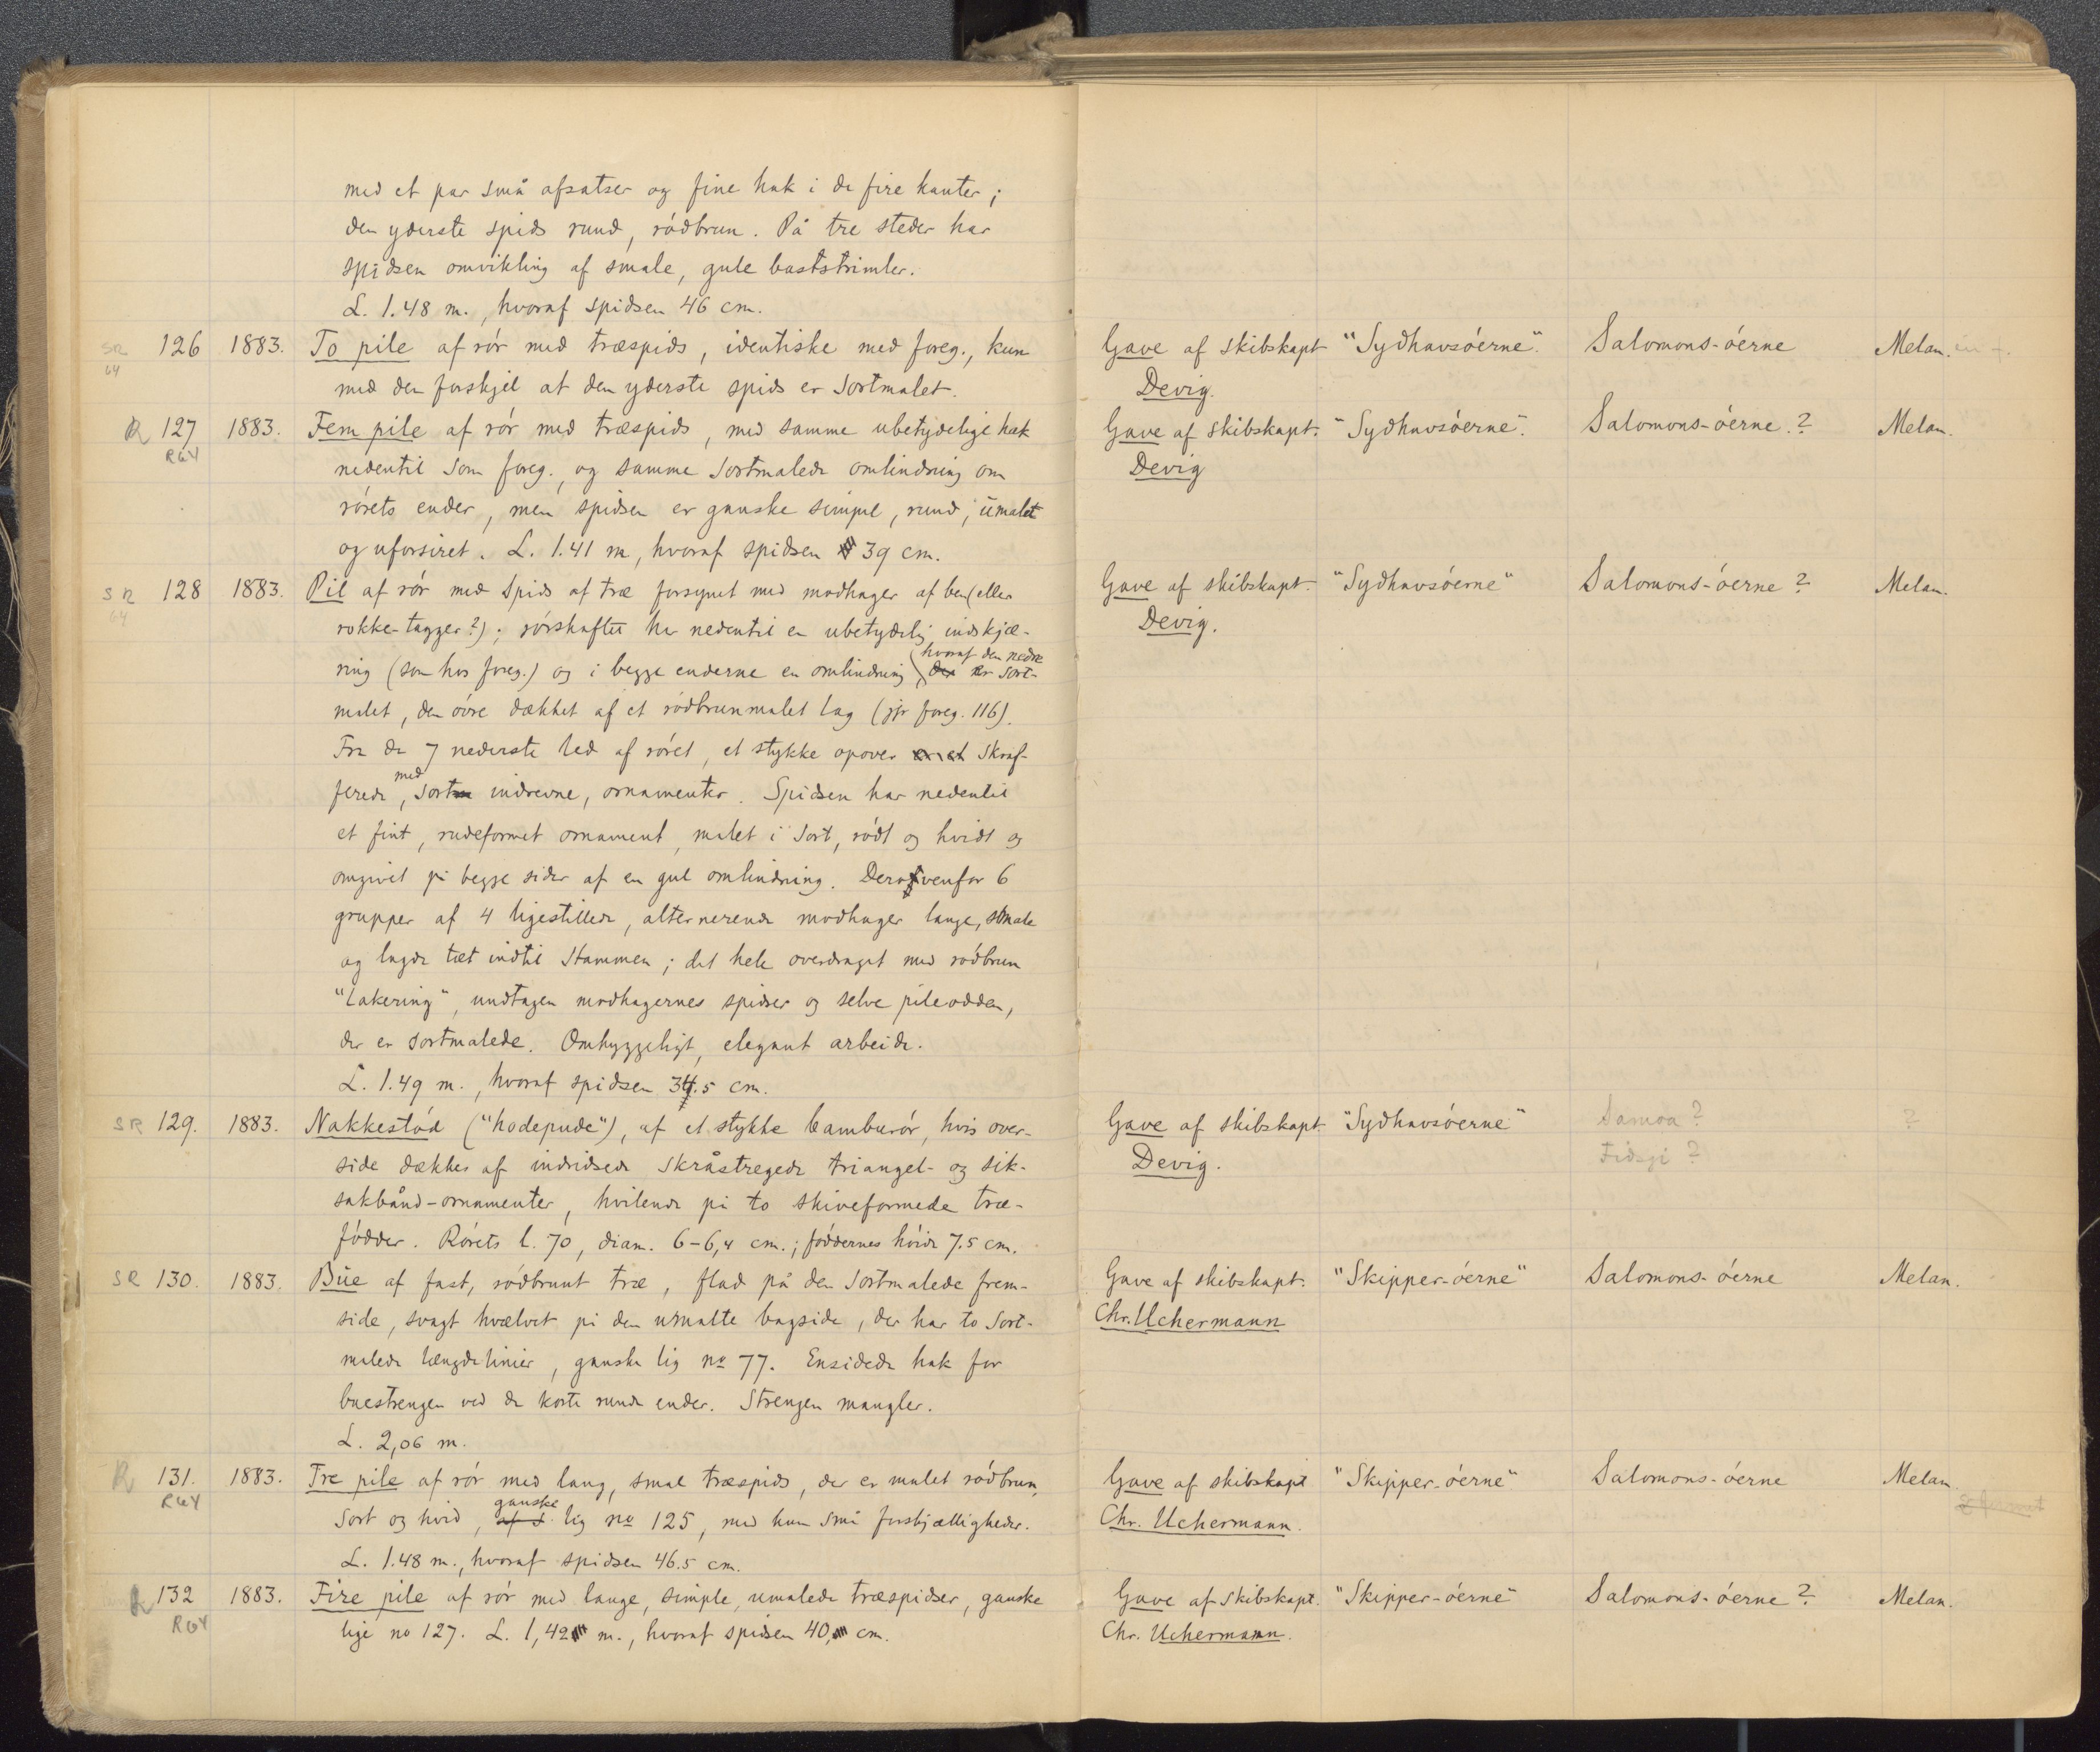 med et par små afsatser og fine hak i de fire kanter;
den yderste spids rund, rödbrun. På tre steder har
spidsen omvikling af smale, gule baststrimler.
L. 1.48 m., hvoraf spidsen 46 cm.
SR 64 126 1883. To pile af rör med træspids, identiske med foreg., kun Gave af skibskapt "Sydhavsöerne". Salomons-öerne Melan.
med den forskjel at den yderste spids er sortmalet. Devig.
R 127 1883. Fem pile af rör med træspids, med samme ubetydelige hak Gave af skibskapt. "Sydhavsöerne". Salomons-öerne? Melan.
R64 nedentil som foreg., og samme sortmalede omlindring om Devig
rörets ender, men spidsen er ganske simpel, rund, umalet
og uforsiret. L. 1.41 m, hvoraf spidsen 39 cm.
SR 64 128 1883. Pil af rör med spids af træ forsynet med modhager af ben (eller Gave af skibskapt. "Sydhavsöerne" Salomons-öerne? Melan.
rokke-tagger?); rörskaftet har nedentil en ubetydelig indskjæ- Devig.
ring (som hos foreg.) og i begge enderne en omlindring (hvoraf den nedre der er sort-
malet, den övre dækket af et rödbrunmalet lag (jfr foreg. 116).
Fra de 7 nederste led af röret, et stykke opover er et skraf-
ferede, med sorten indrevne, ornamenter. Spidsen har nedentil
et fint, rudeformet ornament, malet i sort, rödt og hvidt og
omgivet på begge sider af en gul omlindring. Derovenfor 6
grupper af 4 ligestillede, alternerende modhager lange, smale
og lagde tæt indtil stammen; det hele overdraget med rödbrun
"lakering", undtagen modhagernes spidser og selve pileodden,
der er sortmalede. Omhyggeligt, elegant arbeide.
L. 1.49 m., hvoraf spidsen 34.5 cm.
SR 129. 1883. Nakkestöd ("hodepude"), af et stykke bambusrör, hvis over- Gave af skibskapt. "Sydhavsöerne" Samoa? ?
side dækkes af indridsede skråstregede triangel- og sik- Devig. Fidsji?
sakbånd-ornamenter, hvilende på to skiveformede træ-
födder. Rörets l. 70, diam. 6-6,4 cm.; föddernes höide 7.5 cm.
SR 130. 1883. Bue af fast, rödbrunt træ, flad på den sortmalede frem- Gave af skibskapt. "Skipper-öerne" Salomons-öerne Melan.
side, svagt hvælvet på den umalte bagside, der har to sort- Chr. Uchermann
malede længdelinier, ganske lig no 77. Ensidede hak for
buestrengen ved de korte runde ender. Strengen mangler.
L. 2,06 m.
R 131. 1883. Tre pile af rör med lang, smal træspids, der er malet rödbrun, Gave af skibskapt "Skipper-öerne" Salomons-öerne Melan.
R64 sort og hvid, ganske lig no 125, med kun små forskjælligheder. Chr. Uchermann.
L. 1.48 m., hvoraf spidsen 46.5 cm.
R 132 1883. Fire pile af rör med lange, simple, umalede træspidser, ganske Gave af skibskapt. "Skipper-öerne" Salomons-öerne? Melan.
R64 lige no 127. L. 1,42 m., hvoraf spidsen 40, cm. Chr. Uchermann.